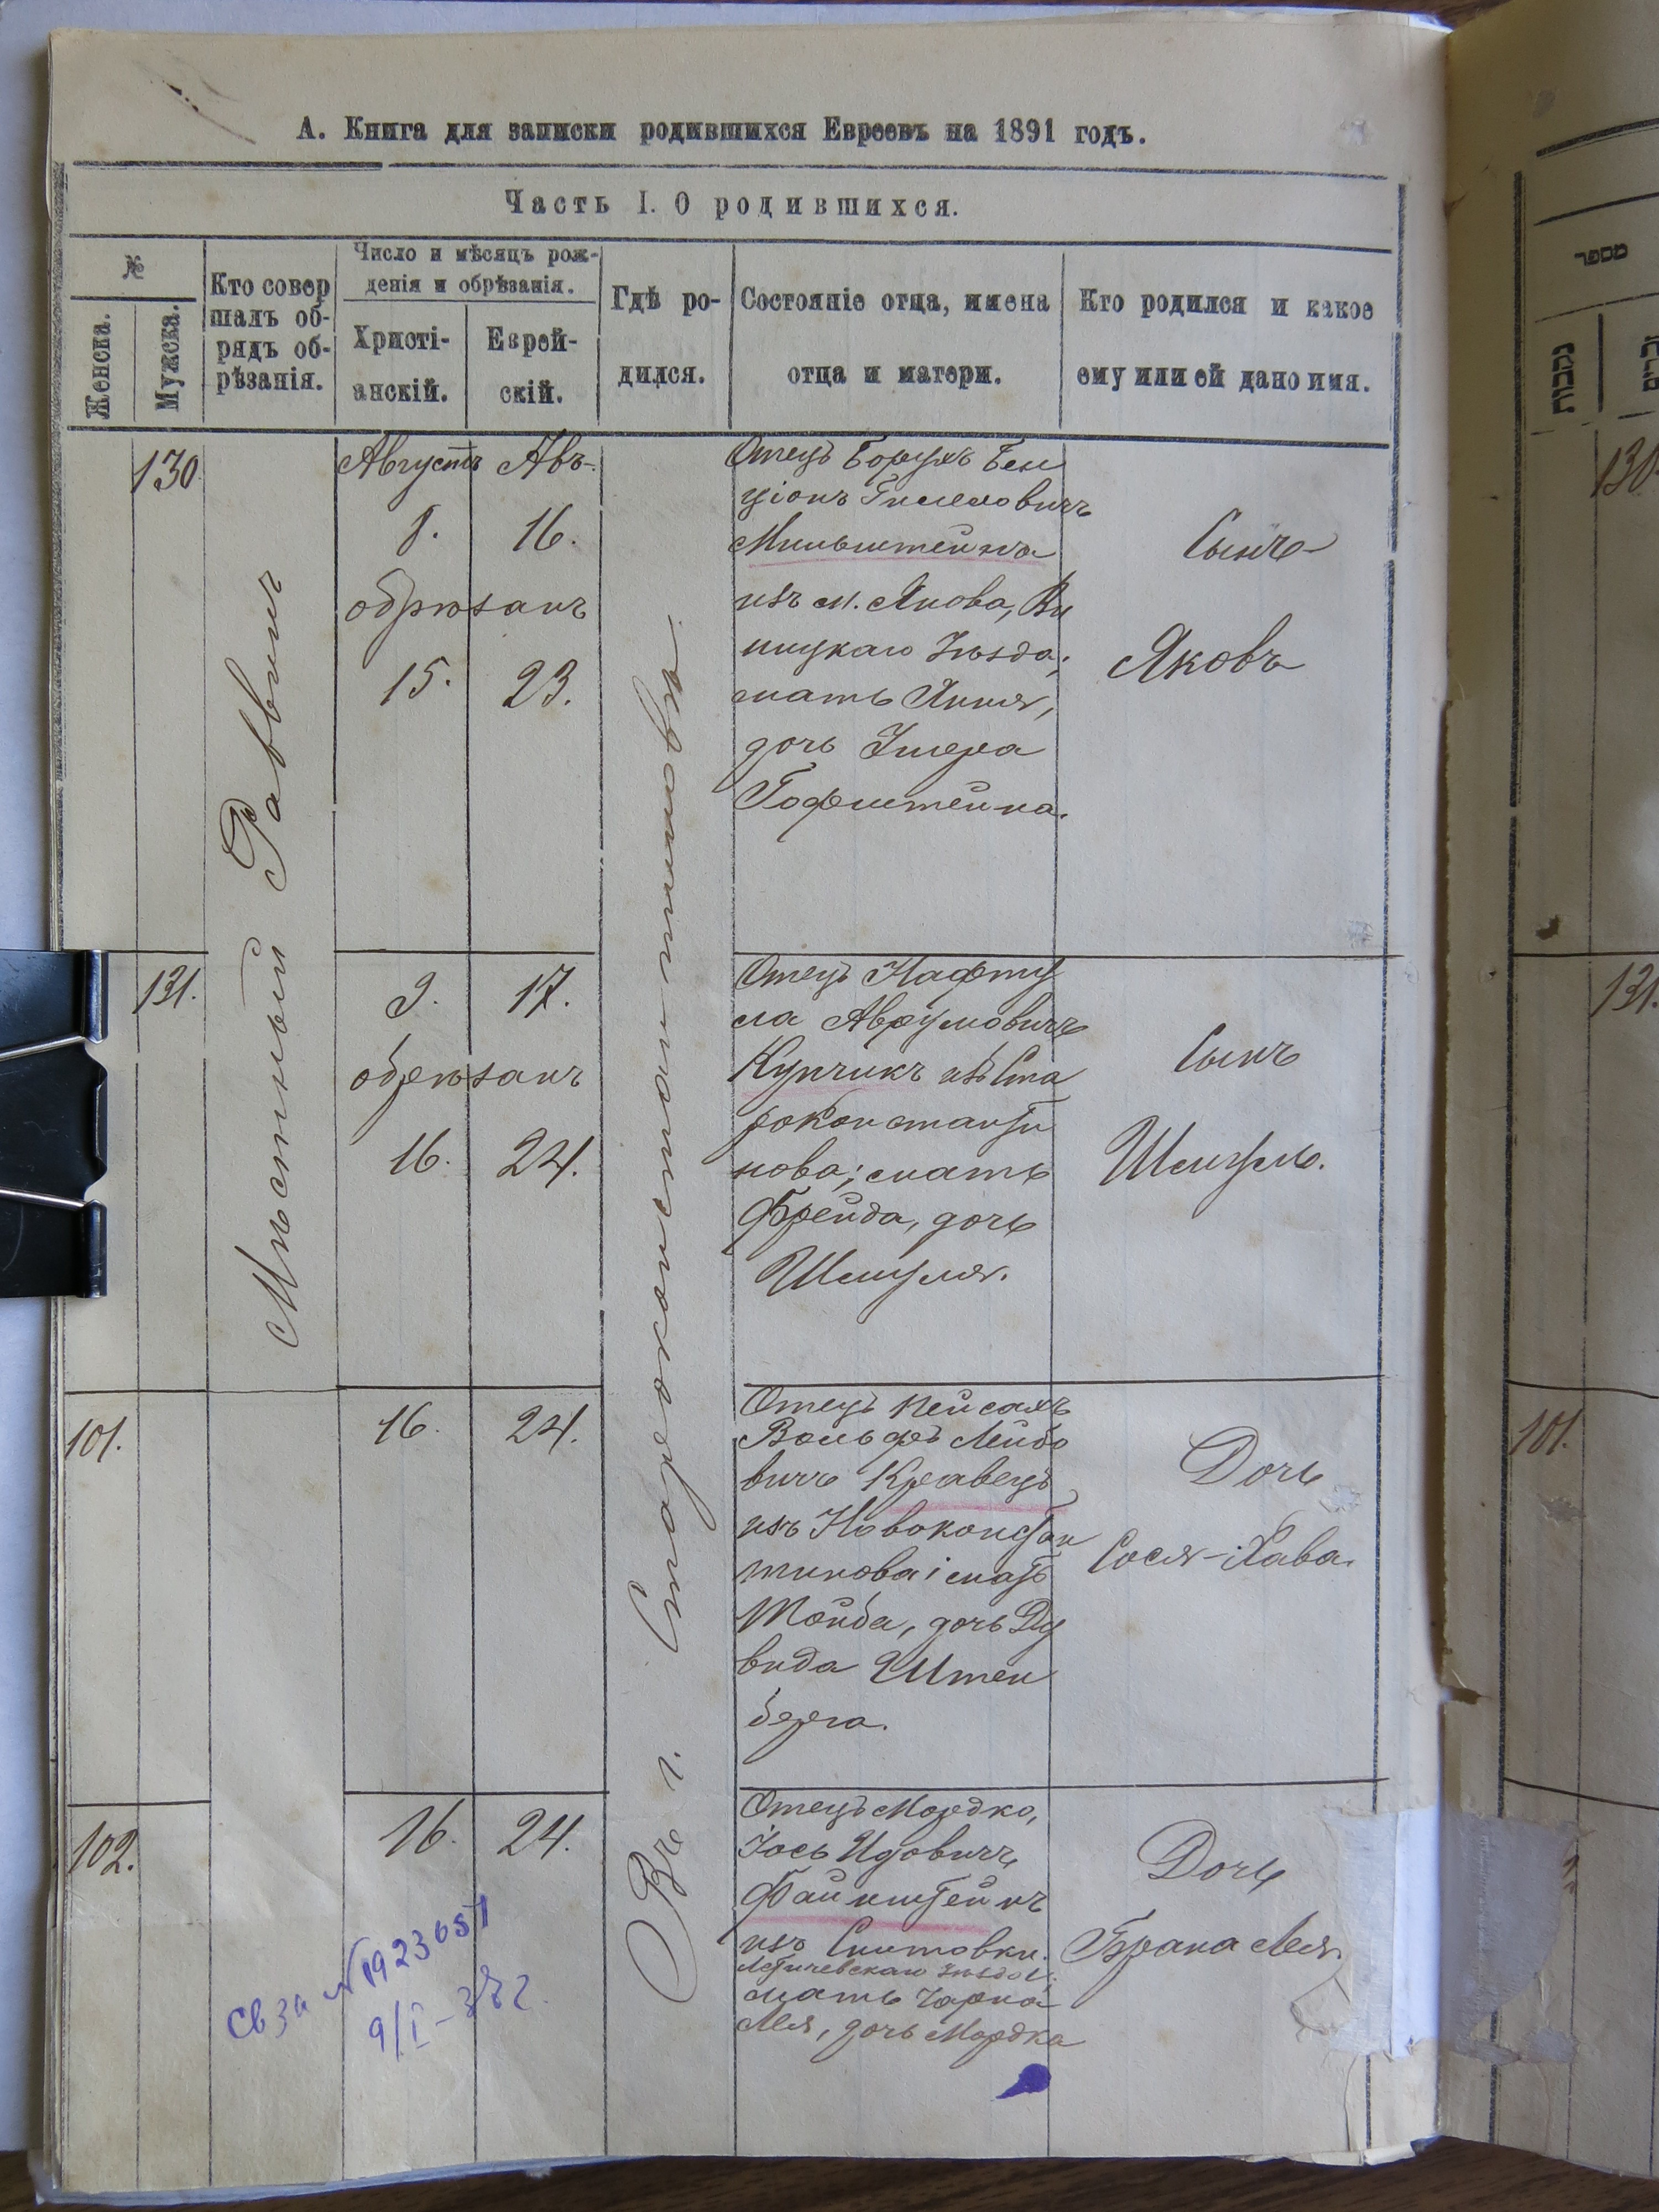 А. Книга для записки родившихся Евреевъ на 1891 годъ.
Часть I. О родившихся.
№
Женска.
Мужска.
Кто совер
шалъ об-
рядъ об-
рѣзанія.
Число и мѣсяцъ рож-
денія и обрѣзанія.
Христі-
анскій.
Еврей-
скій.
Гдѣ ро-
дился.
Состояніе отца, имена
отца и матери.
Кто родился и какое
ему или ей дано имя.
מספר
נקבות
Мѣстный Раввинъ
Въ г. Староконстантиновѣ.
130.
Августъ Авъ.
8. 16.
обрѣзанъ
15. 23.
Отецъ Борухъ Бен
ціонъ Гилелевичъ
Мильштейна
изъ м. Янова, Ви
ницкаго Уѣзда;
мать Яння,
дочь Ушера
Гофштейна.
Сынъ
Яковъ
130
131.
9. 17.
обрѣзанъ
16. 24.
Отецъ Нафту
ла Аврумовичъ
Купчикъ изъ Ста
роконстанти
нова; мать
Фрейда, дочь
Шмуля.
Сынъ
Шмуль.
131.
101.
16. 24.
Отецъ Пейсахъ
Вольфъ Лейбо
вичъ Кравецъ
изъ Новоконстан
тинова; мать
Тойба, дочь Ду
вида Штен
берга.
Дочь
Сося-Хава.
101.
102.
16. 24.
Отецъ Мордко,
Іось Идовичъ
Файнштейнъ
изъ Снитовки.
Летичевскаго Уѣзда;
мать Чарна
Лея, дочь Мордка
Дочь
Брана Лея.
9/I-38г.